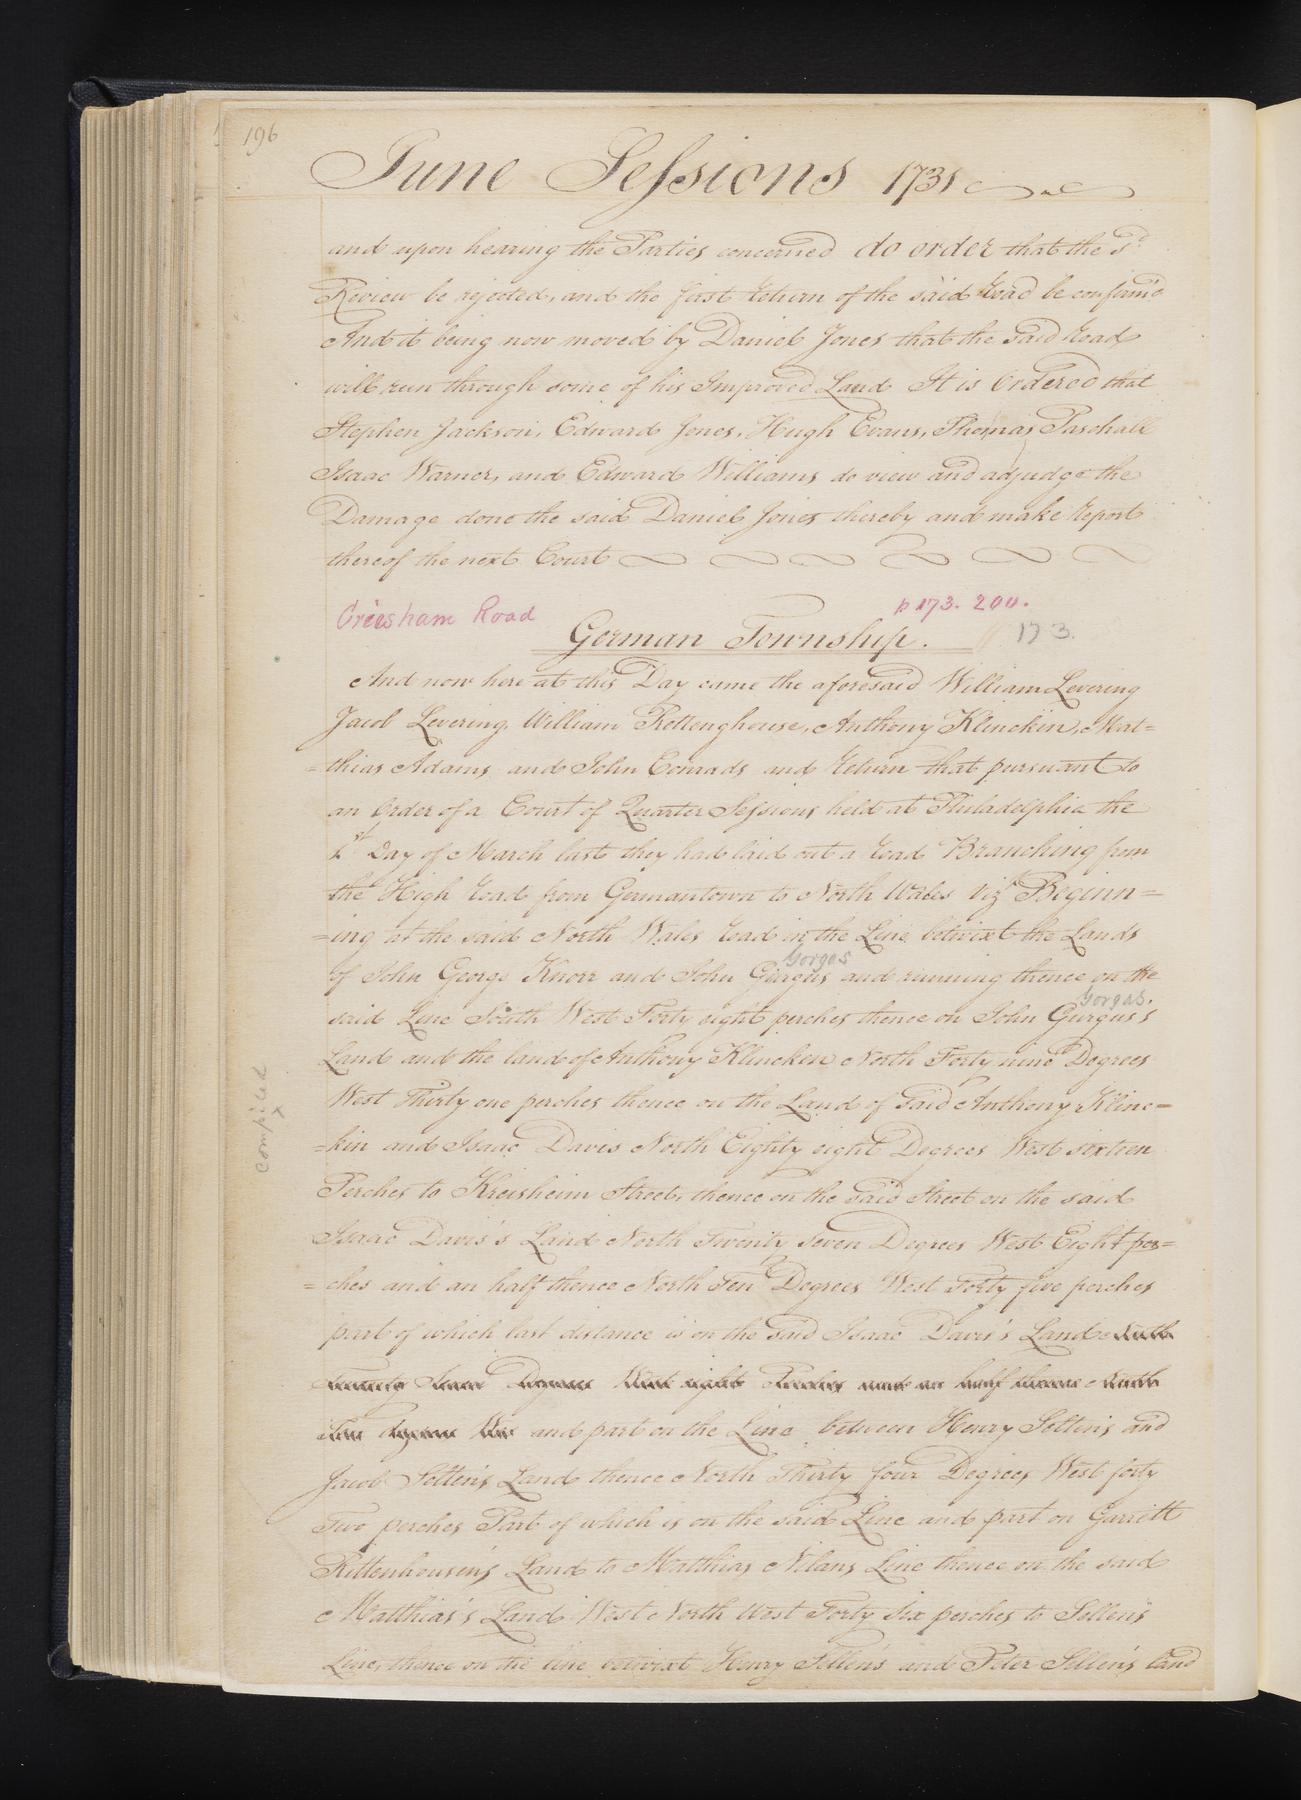 196
June Sessions 1731
and upon hearing the Parties concerned do order that the sd
Review be rejected, and the first Return of the said Road be confirm'd
And it being now moved by Daniel Jones that the said Road
will run through some of his Improved Land It is Ordered that
Stephen Jackson, Edward Jones, Hugh Evans, Thomas Paschall
Isaac Warner, and Edward Williams do view and adjudge the
Damage done the said Daniel Jones thereby and make Report
thereof the next Court
Creesham Road
p 173. 200.
German Township.
173.
And now here at this Day came the aforesaid William Levering
Jacob Levering, William Rottenghouse, Anthony Klinckin, Mat=
=thias Adams, and John Conrads and Return that pursuant to
an Order of a Court of Quarter Sessions held at Philadelphia the
1st Day of March last they had laid out a Road Branching from
the High Road from Germantown to North Wales Vizt Beginn=
=ing at the said North Wales Road in the Line betwixt the Lands
Gorgas
of John George Knorr and John Gurgus and running thence on the
Gorgas.
said Line South West Forty eight perches thence on John Gurgus's
Land and the land of Anthony Klincken North Forty nine Degrees
West Thirty one perches thence on the Land of said Anthony Klinc=
=kin and Isaac Davis North Eighty eight Degrees West sixteen
Perches to Kreisheim Street, thence on the said Street on the said
Isaac Davis's Land North Twenty Seven Degrees West Eight per=
=ches and an half thence North Ten Degrees West Forty five perches
part of which last distance is on the said Isaac Davis's Land North
Twenty Seven Degrees West eight Perches and an half thence North
Ten degrees Wes and part on the Line between Henry Sellen's and
Jacob Sellen's Land thence North Thirty four Degrees West forty
Two perches Part of which is on the said Line and part on Garrett
Rittenhousen's Land to Matthias Milans Line thence on the said
Matthias's Land West North West Forty Six perches to Sellen's
Line, thence on the line betwixt Henry Sellen's and Peter Sellen's land
compiled
x